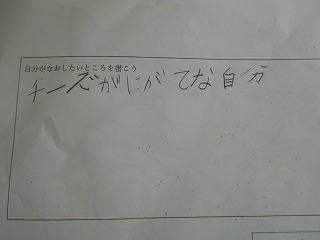 自分がなおしたいところを書こう
チーズがにがてな自分